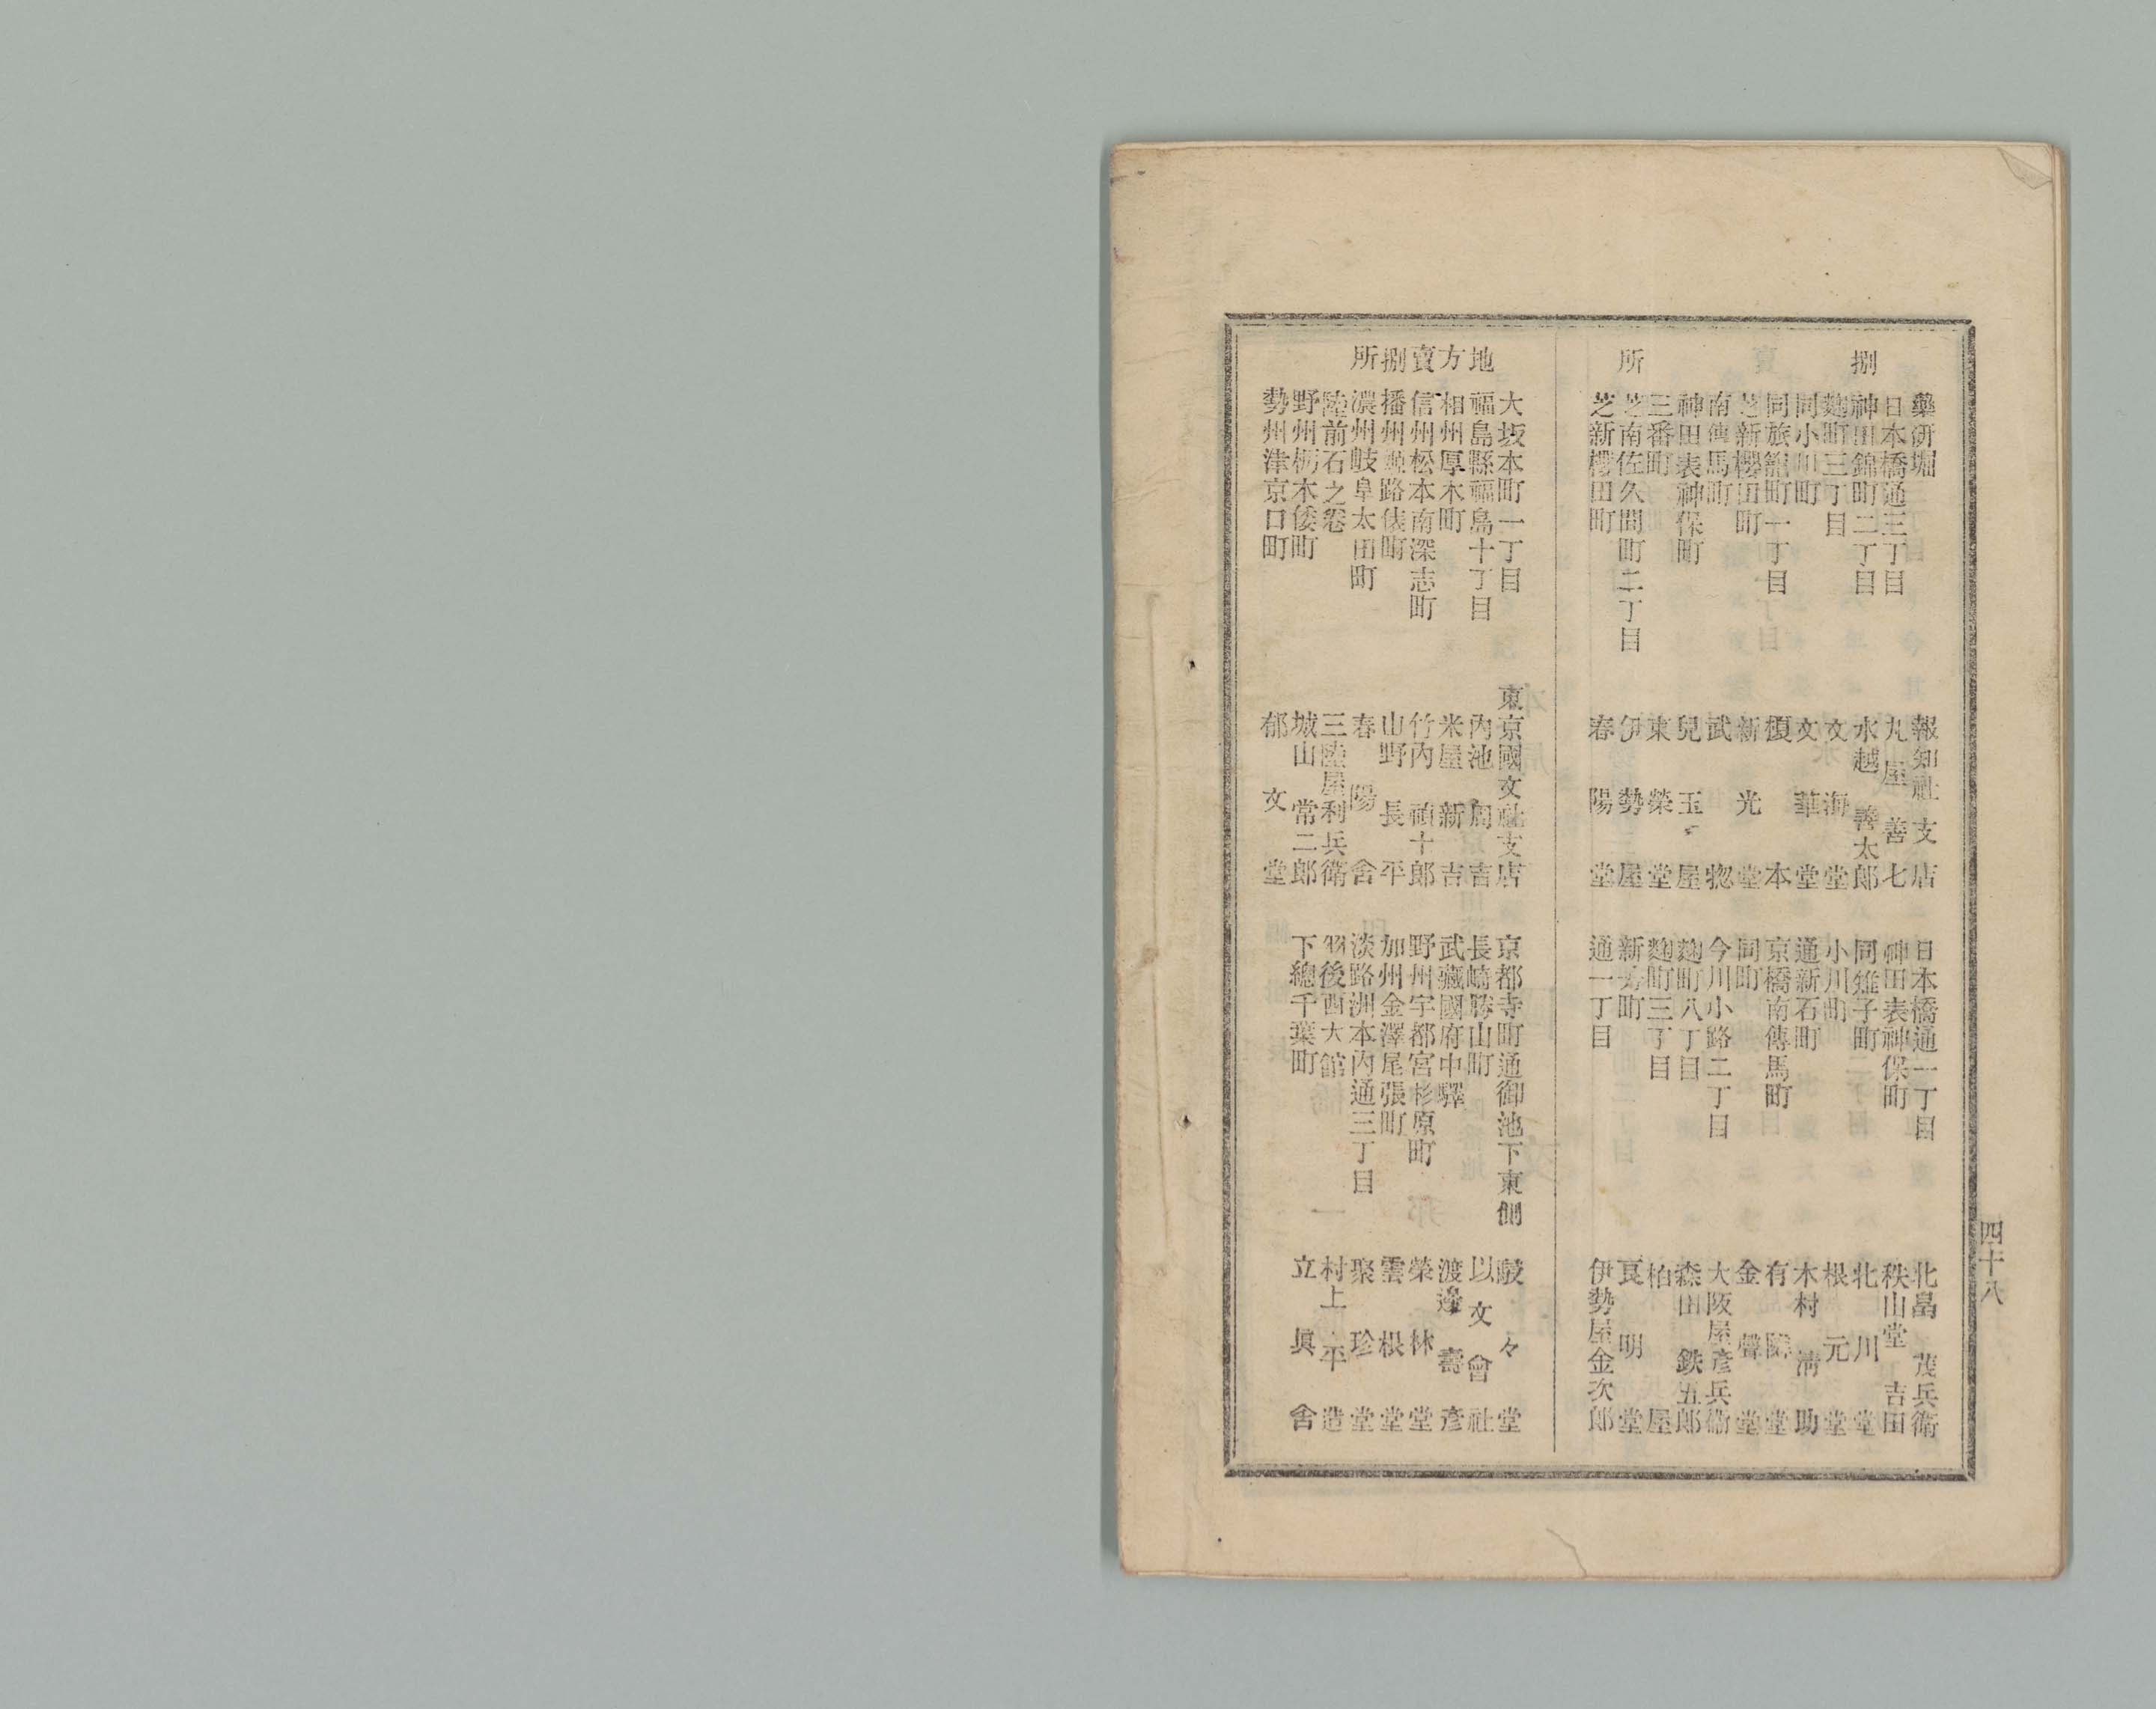 四十八
捌賣所
藥研堀 報知社支店 日本橋通一丁目 北畠茂兵衛
日本橋通三丁目 丸屋善七 神田表神保町 秩山堂吉田
神田錦町二丁目 水越善太郎 同雉子町 北川堂
麹町三丁目 文海堂 小川町 根元堂
同小川町 文華堂 通新石町 木村淸助
同旅籠町一丁目 榎本 京橋南傳馬町 有隣堂
芝新櫻田町 新光堂 同町 金聲堂
南傳馬町 武惣 今川小路二丁目 大阪屋彦兵衛
神田表神保町 兒玉屋 麹町八丁目 森田鉄五郎
三番町 東榮堂 麹町三丁目 柏屋
芝南佐久間町二丁目 伊勢屋 新町 良明堂
芝新櫻田町 春陽堂 通一丁目 伊勢屋金次郎
地方賣捌所
大坂本町一丁目 東京國文社支店 京都寺町通御池下東側 駸々堂
福島縣福島十丁目 內池周吉 長崎勝山町 以文會社
相州厚木町 米屋新吉 武藏國府中驛 渡邊壽彦
信州松本南深志町 竹內禎十郎 野州宇都宮杉原町 榮林堂
播州姬路俵町 山野長平 加州金澤尾張町 雲根堂
濃州岐阜太田町 春陽舍 淡路洲本內通三丁目 聚珍堂
陸前石之卷 三陸屋利兵衛 羽後西大館 村上平造
野州栃木倭町 城山常二郎 下總千葉町 立眞舍
勢州津京口町 郁文堂